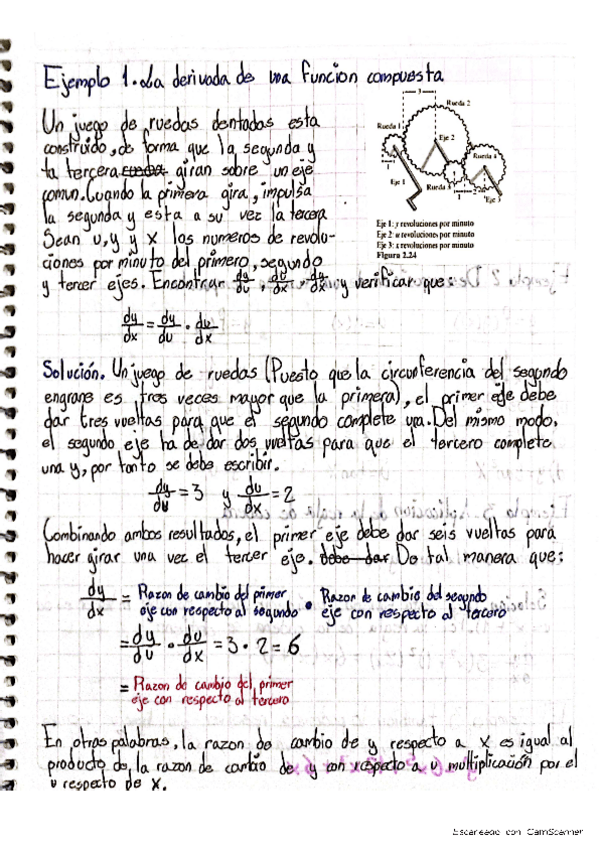 Ejemplo 1. La derivada de una funcion compuesta
Un juego de ruedas dentadas esta
construido, de forma que la segunda y
la tercera giran sobre un eje
comun. Cuando la primera gira, impulsa
la segunda y esta a su vez la tercera
Sean u, y y x los numeros de revolu-
ciones por minuto del primero, segundo
y tercer ejes. Encontrar dy/du, du/dx, dy/dx y verificar que:
dy/dx = dy/du · du/dx
3
Rueda 2
Rueda 1
Eje 2
Rueda 4
1
Eje 1
Rueda 3
1
Eje 3
Eje 1: y revoluciones por minuto
Eje 2: u revoluciones por minuto
Eje 3: x revoluciones por minuto
Figura 2.24
Solución. Un juego de ruedas (Puesto que la circunferencia del segundo
engrane es tres veces mayor que la primera), el primer eje debe
dar tres vueltas para que el segundo complete una. Del mismo modo,
el segundo eje ha de dar dos vueltas para que el tercero complete
una y, por tanto se debe escribir.
dy/du = 3 y du/dx = 2
Combinando ambos resultados, el primer eje debe dar seis vueltas para
hacer girar una vez el tercer eje. debe dar De tal manera que:
dy/dx = Razon de cambio del primer eje con respecto al segundo • Razon de cambio del segundo eje con respecto al tercero
= dy/du · du/dx = 3 · 2 = 6
= Razon de cambio del primer
eje con respecto al tercero
En otras palabras, la razon de cambio de y respecto a x es igual al
producto de, la razon de cambio de y con respecto a u multiplicación por el
u respecto de x.
Escaneado con CamScanner